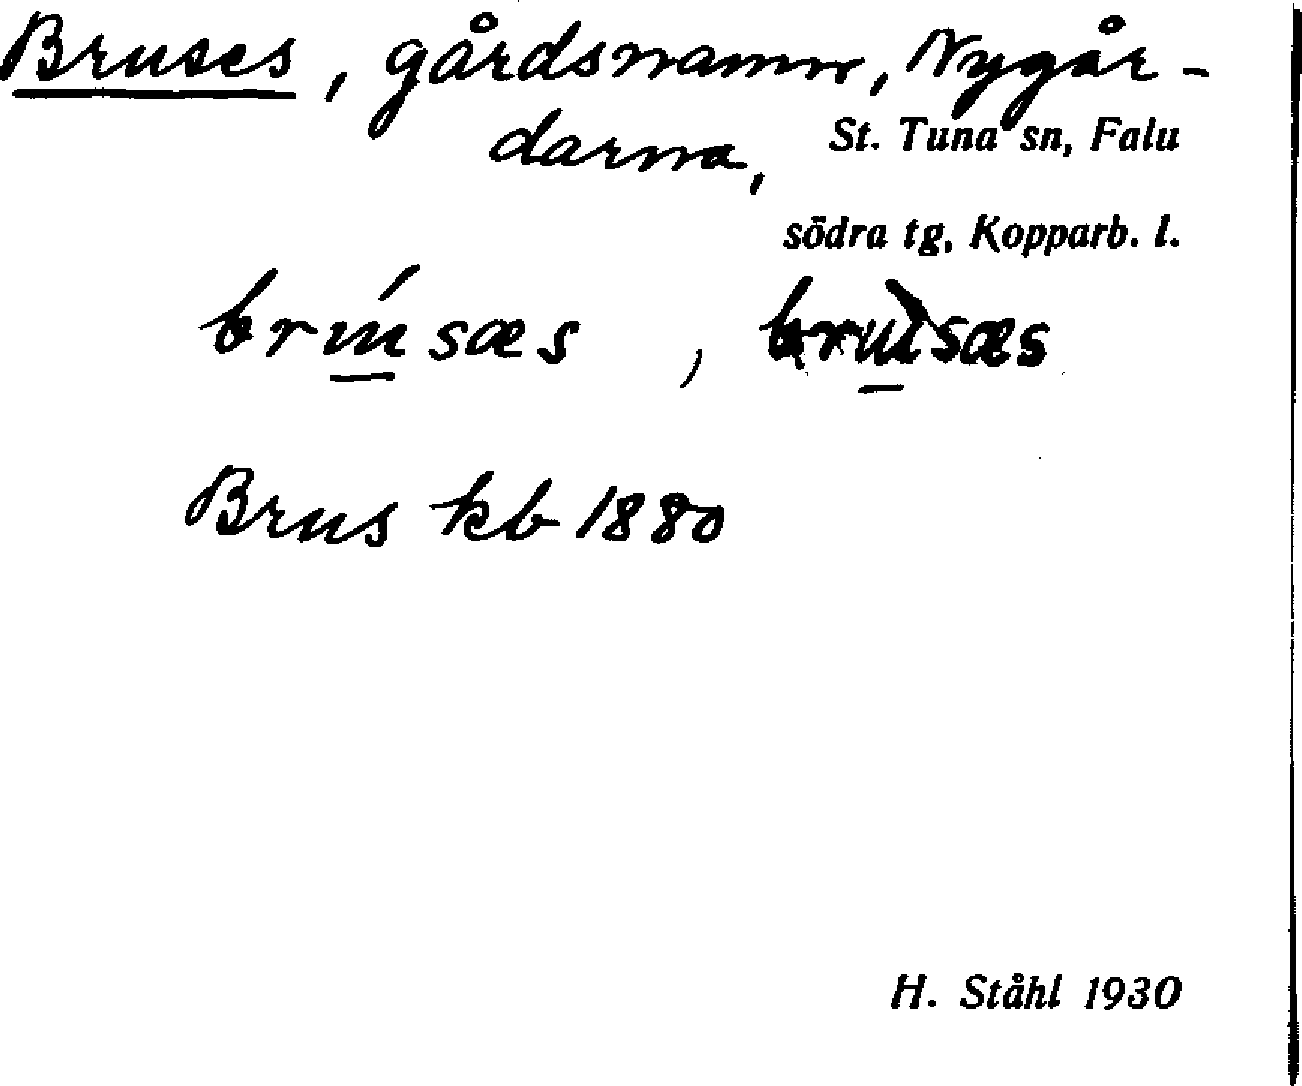 Bruses, gårdsnamn, Nygår-
darna, St. Tuna sn, Falu
södra tg, Kopparb. l.
brɯ́sæs, brɯ̀sæs
Brus kb 1880
H. Ståhl 1930